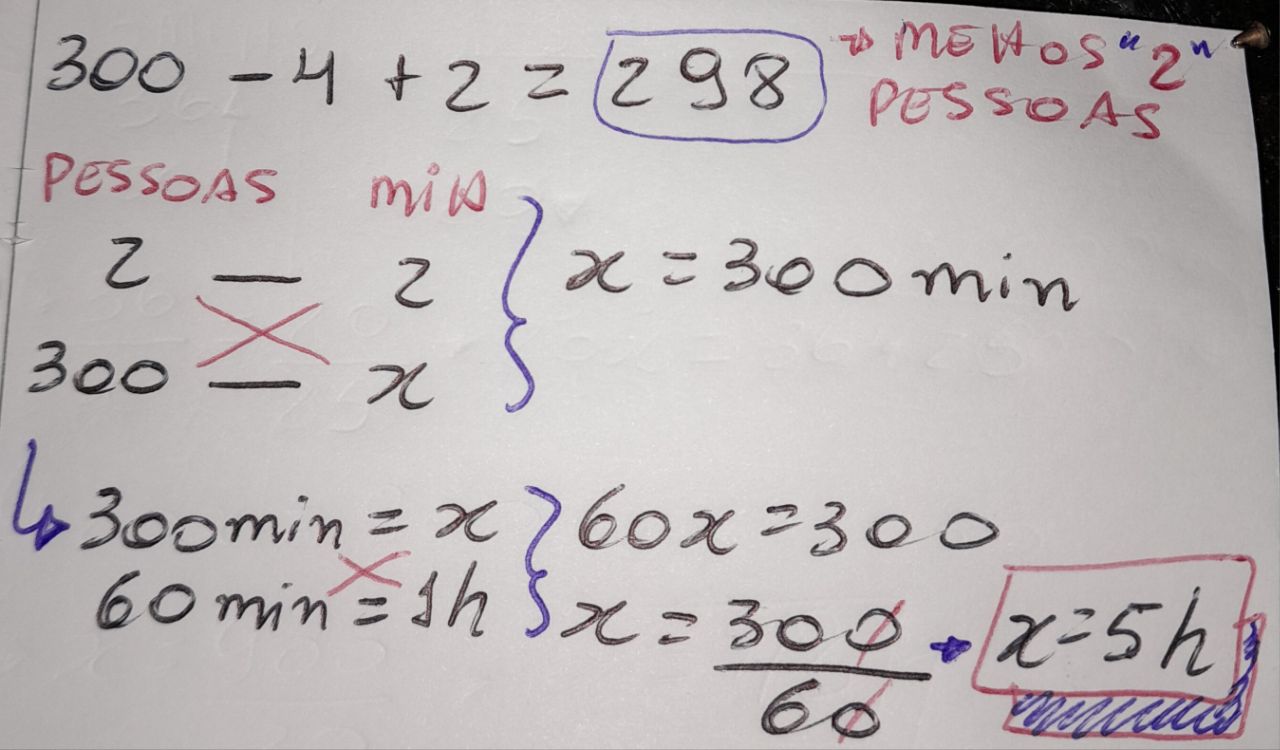 300 - 4 + 2 = 298 → MENOS "2" PESSOAS
PESSOAS min
2 — 2
300 — x
x = 300 min
300 min = x
60 min = 1h
60x = 300
x = 300/60 → x = 5h